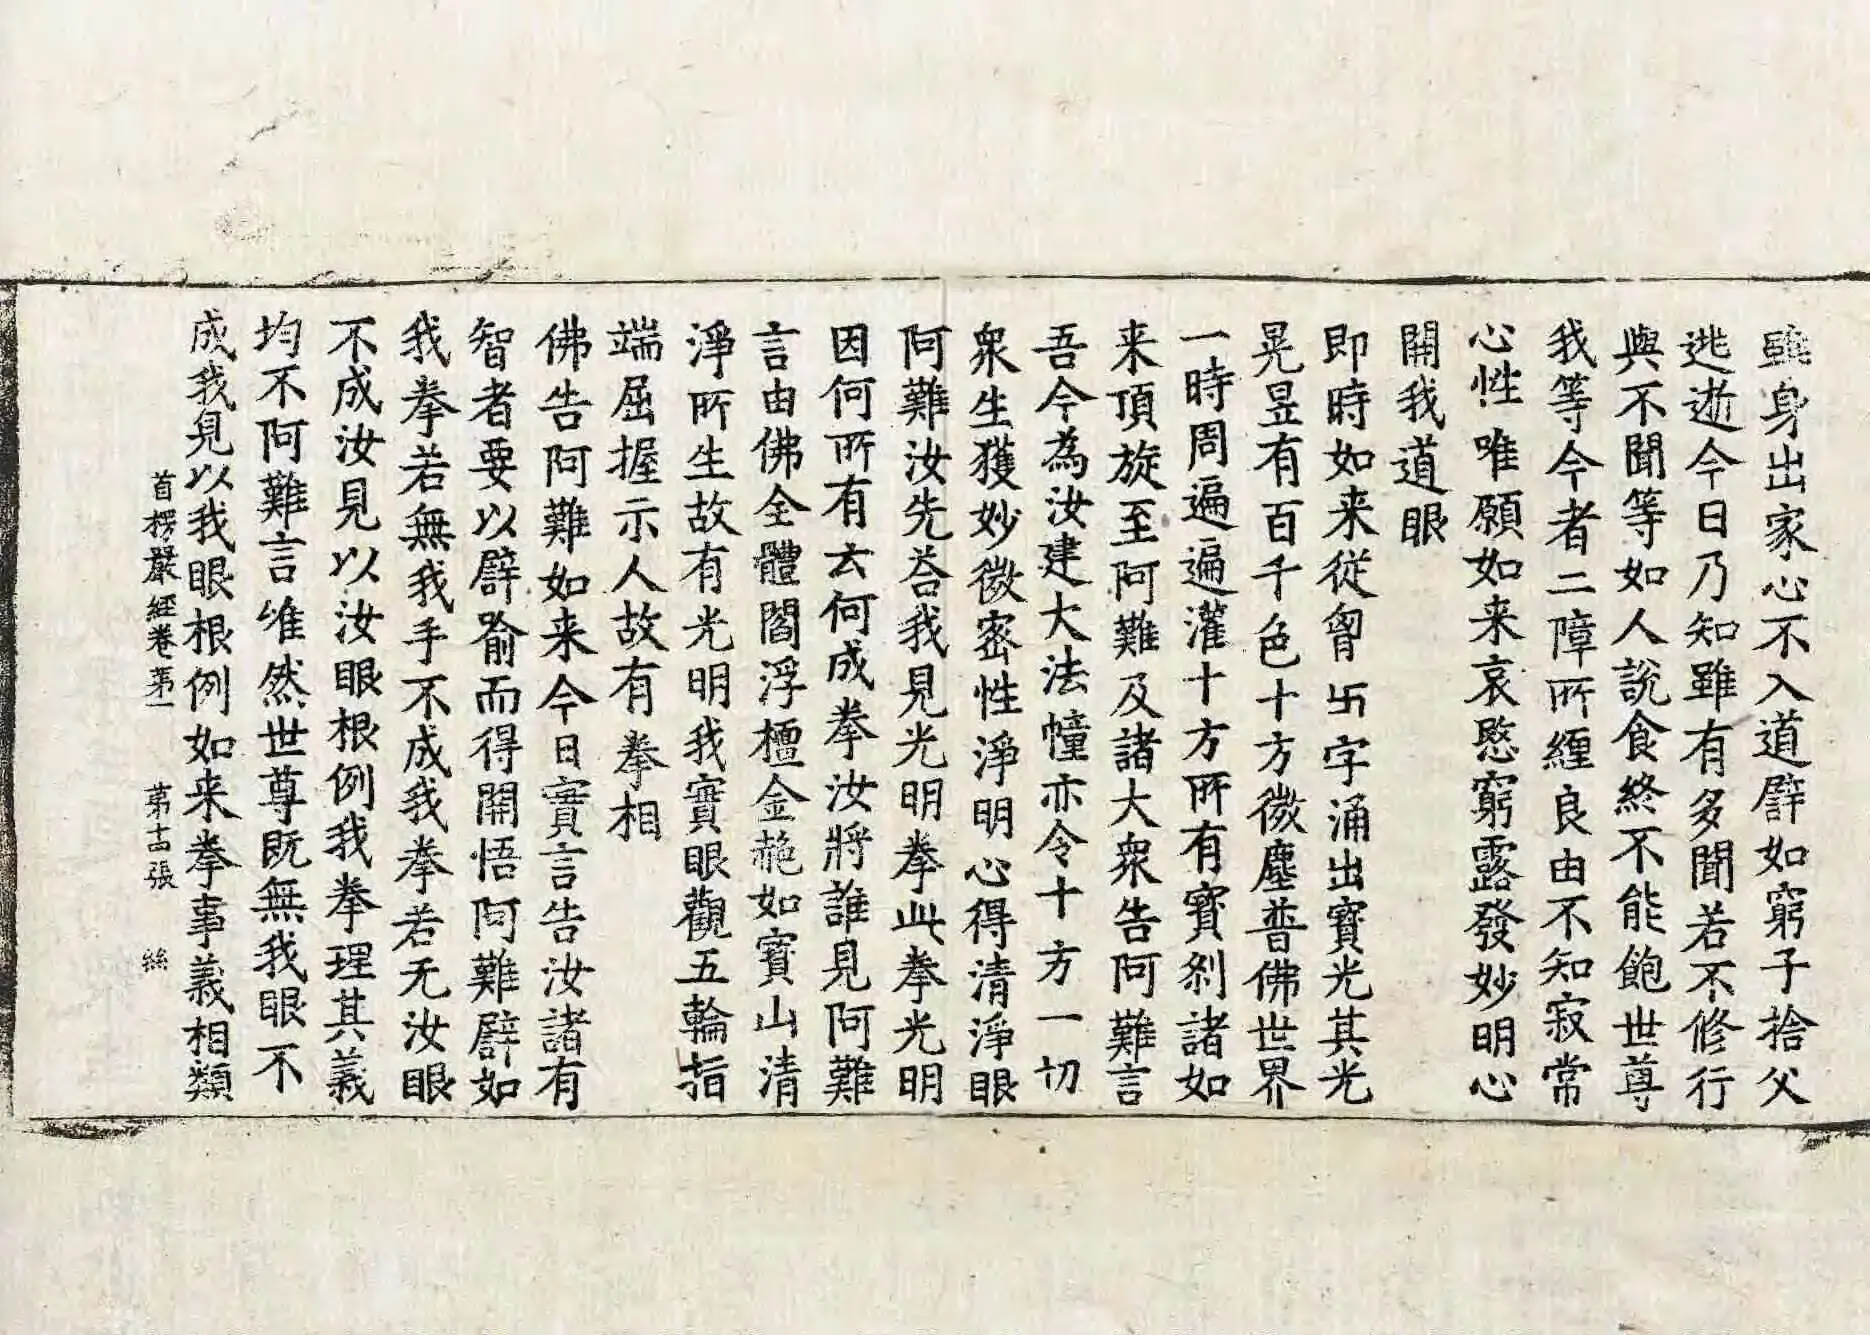 雖身出家心不入道譬如窮子捨父
逃逝今日乃知雖有多聞若不修行
與不聞等如人說食終不能飽世尊
我等今者二障所纏良由不知寂常
心性唯願如来哀愍窮露發妙明心
開我道眼
即時如来從胷卐字涌出寶光其光
晃昱有百千色十方微塵普佛世界
一時周遍遍灌十方所有寶刹諸如
来頂旋至阿難及諸大衆告阿難言
吾今為汝建大法幢亦令十方一切
衆生獲妙微密性淨明心得清淨眼
阿難汝先荅我見光明拳此拳光明
因何所有云何成拳汝將誰見阿難
言由佛全體閻浮檀金赩如寶山清
淨所生故有光明我實眼觀五輪指
端屈握示人故有拳相
佛告阿難如来今日實言告汝諸有
智者要以譬喻而得開悟阿難譬如
我拳若無我手不成我拳若无汝眼
不成汝見以汝眼根例我拳理其義
均不阿難言唯然世尊既無我眼不
成我見以我眼根例如来拳事義相類
首楞嚴經卷第一 第十四張 絲